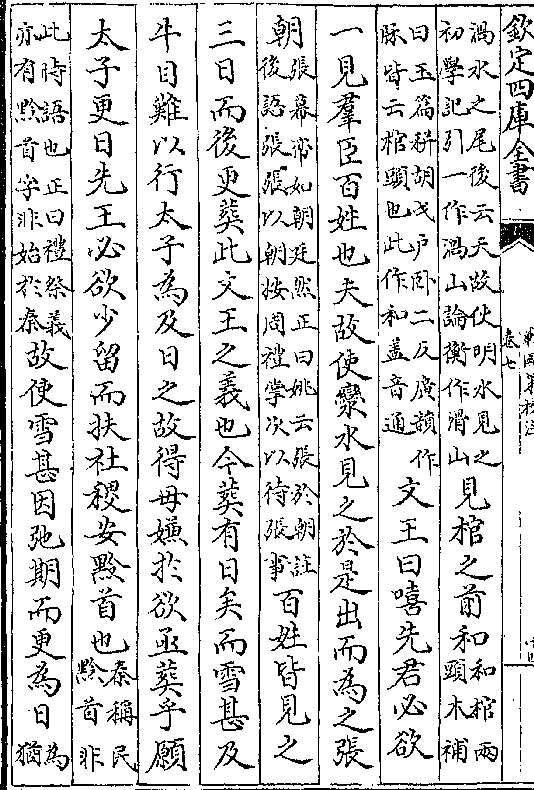 欽定四庫全書
戰國策校注
卷七
渦水之尾後云天故使明水見之
初學記引一作渦山論衡作滑山
見棺之前和
和棺兩
頭木補
曰玉篇耕胡戈户卧二反廣韻作
脉皆云棺頭也此作和盖音通
文王曰嘻先君必欲
一見羣臣百姓也夫故使灓水見之於是出而為之張
朝
張幕帟如朝廷然正曰姚云張於朝註
後語張張以朝按周禮掌次以待張事
百姓皆見之
三日而後更葬此文王之義也今葬有日矣而雪甚及
牛目難以行太子為及日之故得毋嫌於欲亟葬乎願
太子更日先王必欲少留而扶社稷安黔首也
秦稱民
黔首非
此時語也正曰禮祭義
亦有黔首字非始於秦
故使雪甚因弛期而更為日
為
猶